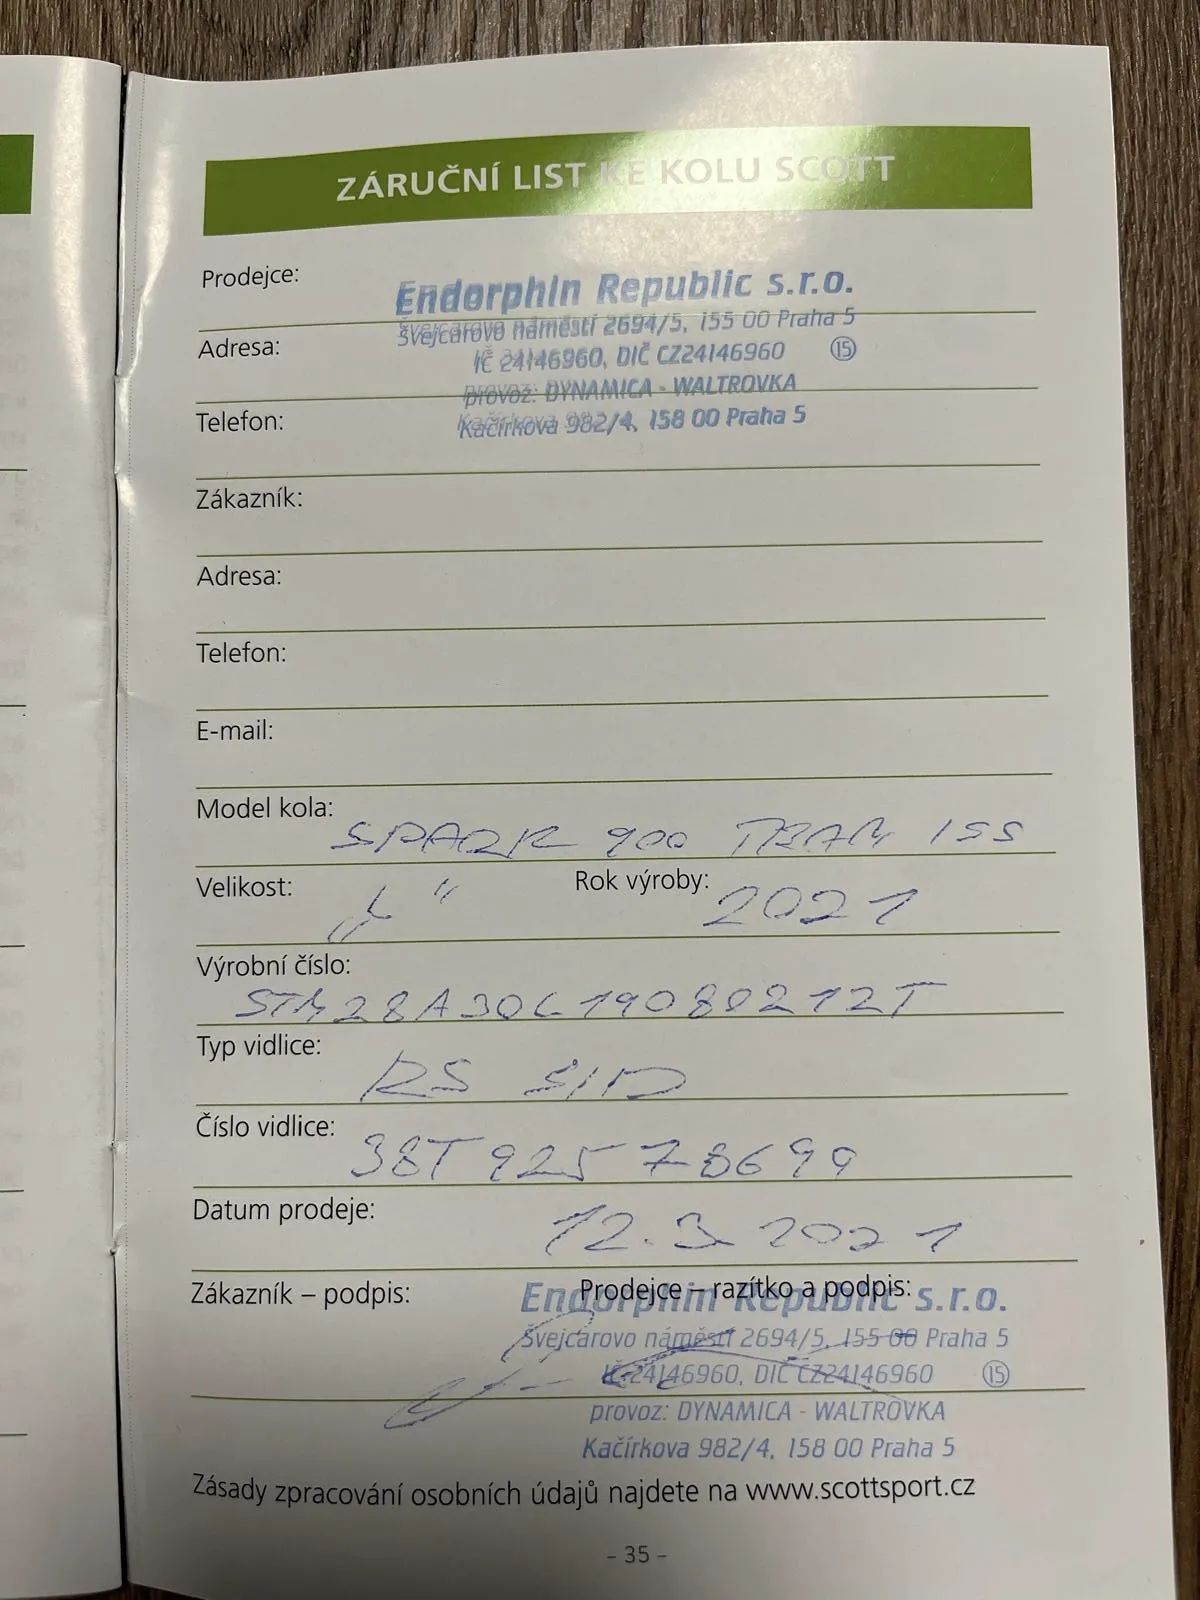 ZÁRUČNÍ LIST KE KOLU SCOTT
Prodejce:
Endorphin Republic s.r.o.
Švejcarovo náměstí 2694/5, 155 00 Praha 5
Adresa:
IČ 24146960, DIČ CZ24146960 15
provoz: DYNAMICA - WALTROVKA
Telefon:
Kačírkova 982/4, 158 00 Praha 5
Zákazník:
Adresa:
Telefon:
E-mail:
Model kola: SPARK 900
Velikost: „L“ Rok výroby: 2021
Výrobní číslo:
STM28A30L19080212T
Typ vidlice: RS SID
Číslo vidlice: 38T92578699
Datum prodeje: 12.3.2021
Zákazník – podpis: Prodejce – razítko a podpis:
Endorphin Republic s.r.o.
Švejcarovo náměstí 2694/5, 155 00 Praha 5
IČ 24146960, DIČ CZ24146960 15
provoz: DYNAMICA - WALTROVKA
Kačírkova 982/4, 158 00 Praha 5
Zásady zpracování osobních údajů najdete na www.scottsport.cz
- 35 -